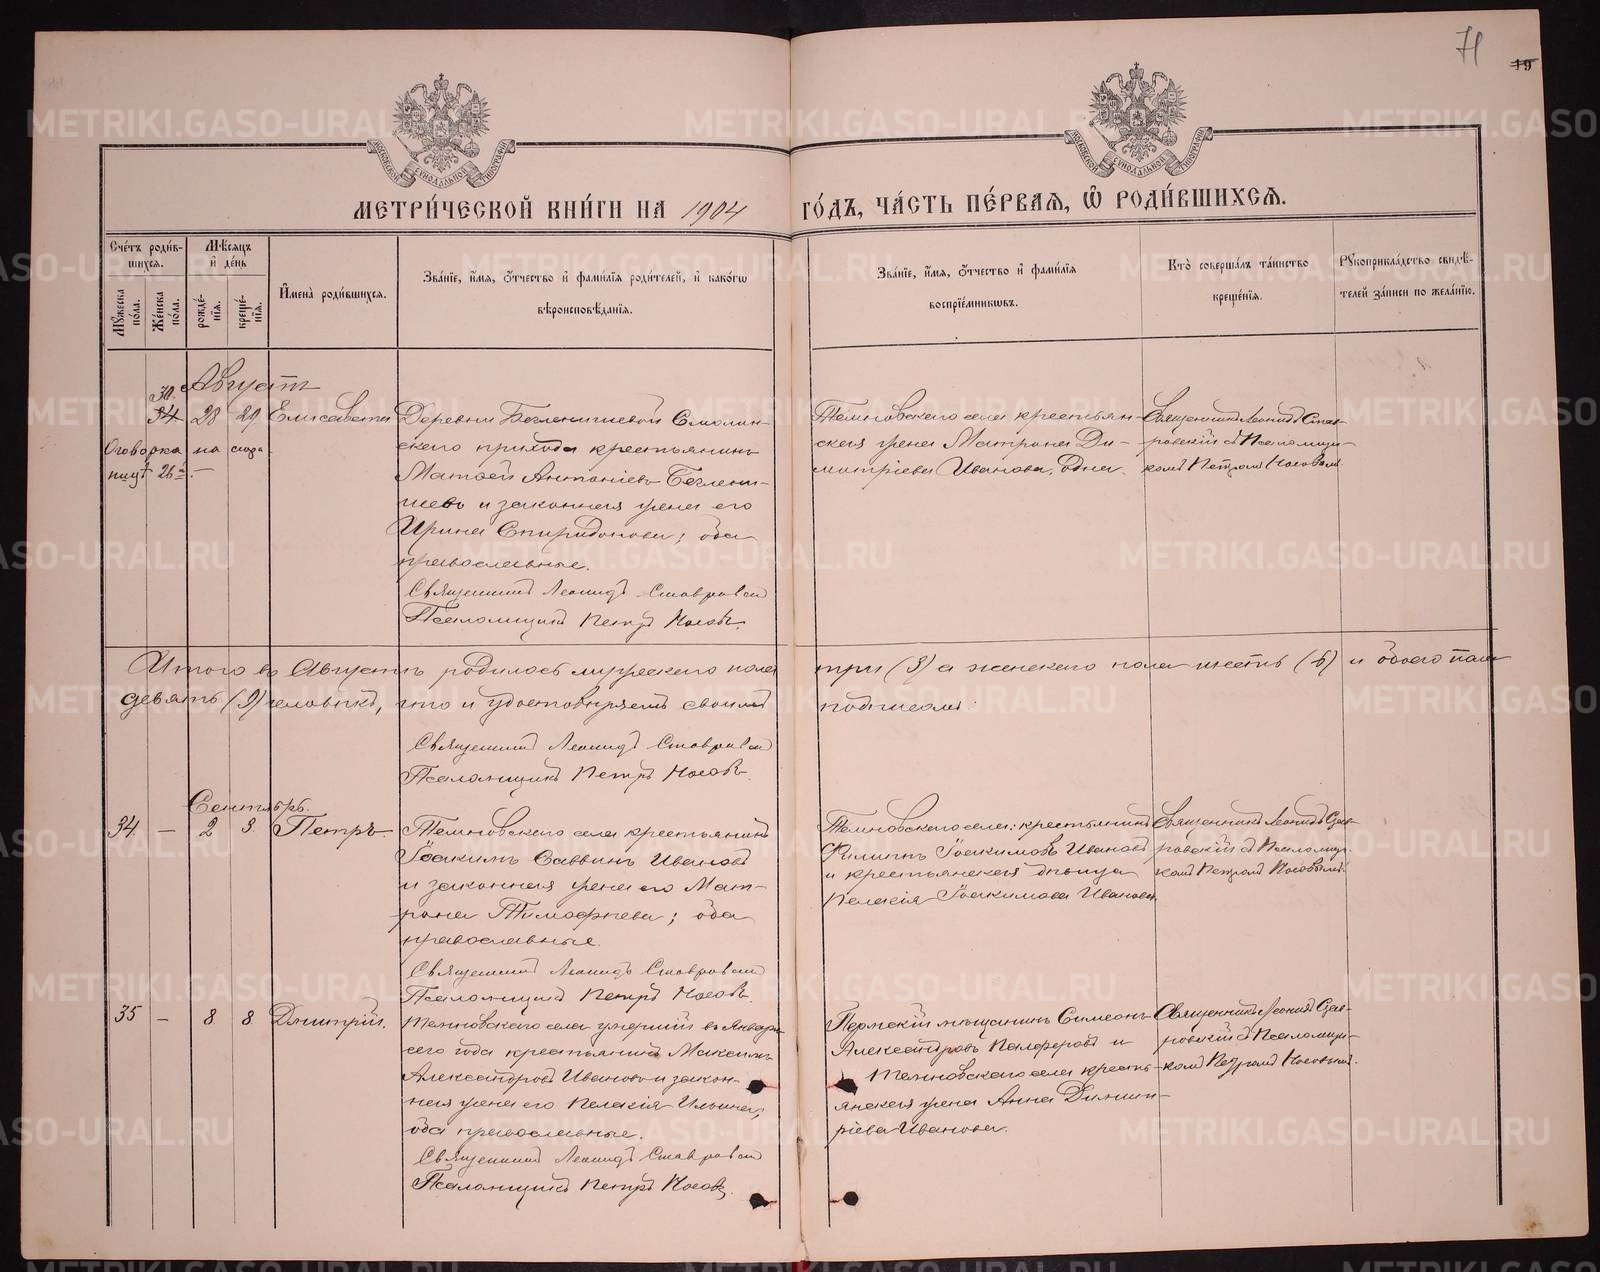 71
19
МОСКОВСКОЙ СѴНОДАЛЬНОЙ ТИПОГРАФІИ
МОСКОВСКОЙ СѴНОДАЛЬНОЙ ТИПОГРАФІИ
МЕТРИ́ЧЕСКОЙ КНИ́ГИ НА 1904 ГО́ДЪ, ЧА́СТЬ ПЕ́РВАѦ, Ѡ҆ РОДИ́ВШИХСѦ.
Сче́тъ роди́в-
шихсѧ.
Мꙋжеска по́ла.
Же́нска по́ла.
Мѣ́сѧцъ
и҆ де́нь
рожде́-
нїѧ.
креще́-
нїѧ.
И҆мена̀ роди́вшихсѧ.
Зва́нїе, и҆́мѧ, ѻ҆́тчество и҆ фами́лїѧ роди́телей, и҆ како́гѡ
вѣроисповѣ́данїѧ.
Зва́нїе, и҆́мѧ, ѻ҆́тчество и҆ фами́лїѧ
воспрїе́мникѡвъ.
Кто̀ соверша́лъ та́инство
креще́нїѧ.
Рꙋкоприкла́дство свидѣ́-
телей за́писи по жела́нїю.
Августъ
30.
34 28 29 Елисавета
Оговорка на сюда
пид 26
Деревни Бегленишевой Смолин-
скаго прихода крестьянинъ
Матѳей Антоніевъ Беглени-
шевъ и законная жена его
Ирина Спиридонова; оба
православные.
Священникъ Леонидъ Ставровскій
Псаломщикъ Петръ Носовъ.
Темновского села крестьян-
ская жена Матрона Ди-
митріева Иванова, одна
Священникъ Леонидъ Став-
ровскій съ Псаломщи-
комъ Петромъ Носовымъ
Итого въ Августѣ родилось мужескаго пола три (3) а женскаго пола шесть (6) и обоего пола
девять (9) человѣкъ, что и удостовѣряемъ своимъ подписомъ.
Священникъ Леонидъ Ставровскій
Псаломщикъ Петръ Носовъ.
Сентябрь.
34 — 2 3. Петръ
Темновского села крестьянинъ
Іоакимъ Саввинъ Ивановъ
и законная жена его Мат-
рона Тимофѣева; оба
православные.
Священникъ Леонидъ Ставровскій
Псаломщикъ Петръ Носовъ.
Темновского села: крестьянинъ
Филиппъ Іоакимовъ Ивановъ
и крестьянская дѣвица
Пелагія Іоакимова Иванова
Священникъ Леонидъ Став-
ровскій съ Псаломщи-
комъ Петромъ Носовымъ.
35 — 8 8 Дмитрій.
Темновского села умершій въ Январѣ
сего года крестьянинъ Максимъ
Александровъ Ивановъ и закон-
ная жена его Пелагія Ильина,
оба православные.
Священникъ Леонидъ Ставровскій
Псаломщикъ Петръ Носовъ.
Пермскій мѣщанинъ Симеонъ
Александровъ Панферовъ и
Темновского села кресть-
янская жена Анна Димит-
ріева Иванова.
Священникъ Леонидъ Став-
ровскій съ Псаломщи-
комъ Петромъ Носовымъ.
METRIKI.GASO-URAL.RU